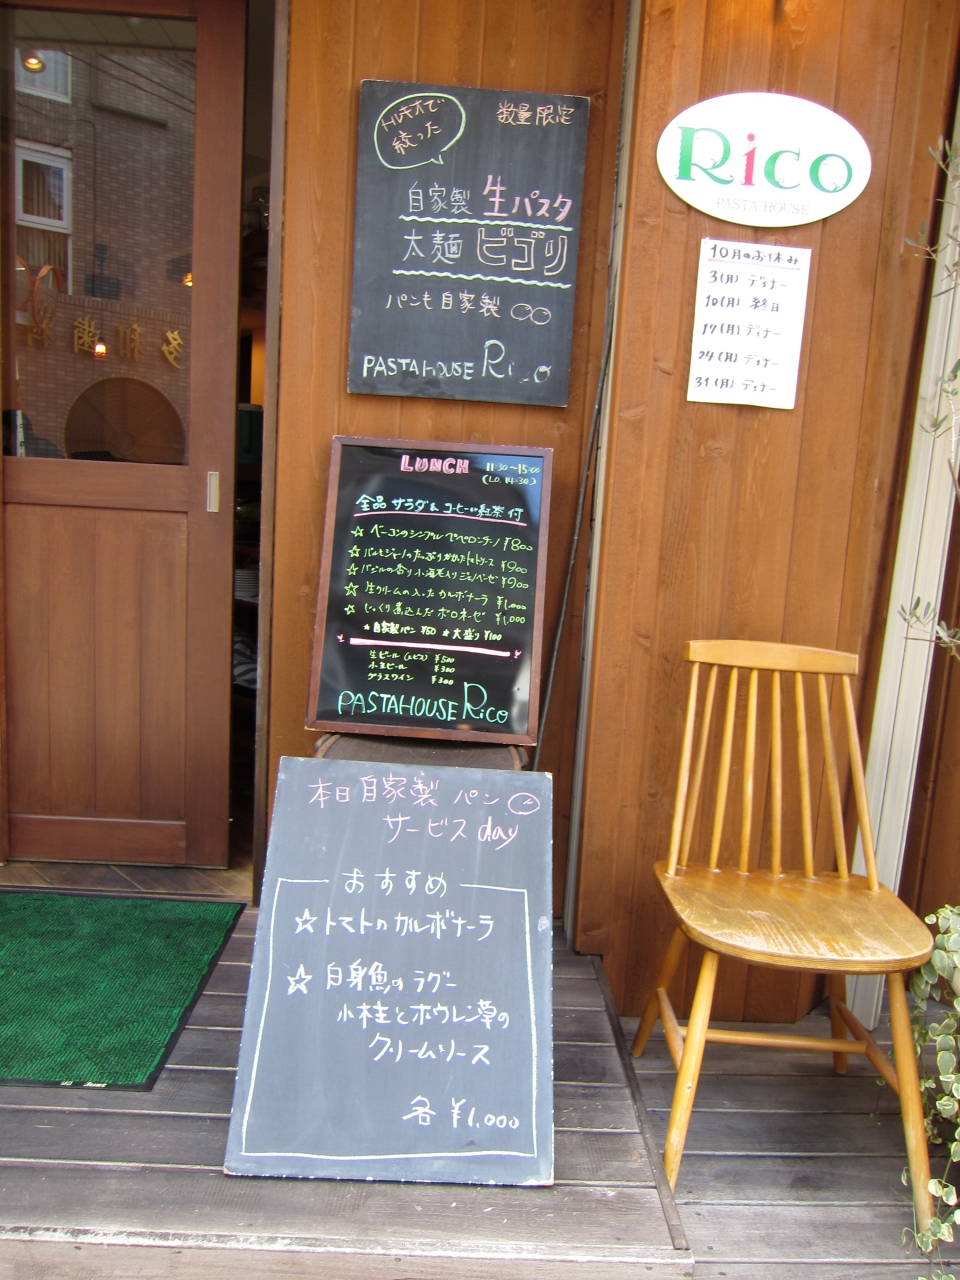 トルキオで
絞った
数量限定
自家製 生パスタ
太麺 ビゴリ
パンも自家製
PASTAHOUSE Rico
Rico
PASTA HOUSE
10月のお休み
3(月) ディナー
10(月) 終日
17(月) ディナー
24(月) ディナー
31(月) ディナー
LUNCH 11:30～15:00
(L.O. 14:30)
全品 サラダ& コーヒーor紅茶 付
☆ ベーコンのシンプル ペペロンチーノ ¥800
☆ パルミジャーノのたっぷりかかったトマトソース ¥900
☆ バジルの香り 小海老入り ジェノベーゼ ¥900
☆ 生クリームの入った カルボナーラ ¥1,000
☆ じっくり煮込んだ ボロネーゼ ¥1,000
★ 自家製パン ¥50 ★ 大盛り ¥100
生ビール (エビス) ¥500
小生ビール ¥300
グラスワイン ¥300
PASTAHOUSE Rico
本日 自家製 パン
サービス day
おすすめ
☆ トマトの カルボナーラ
☆ 白身魚の ラグー
小柱と ホウレン草の
クリームソース
各 ¥1,000
多和歯科